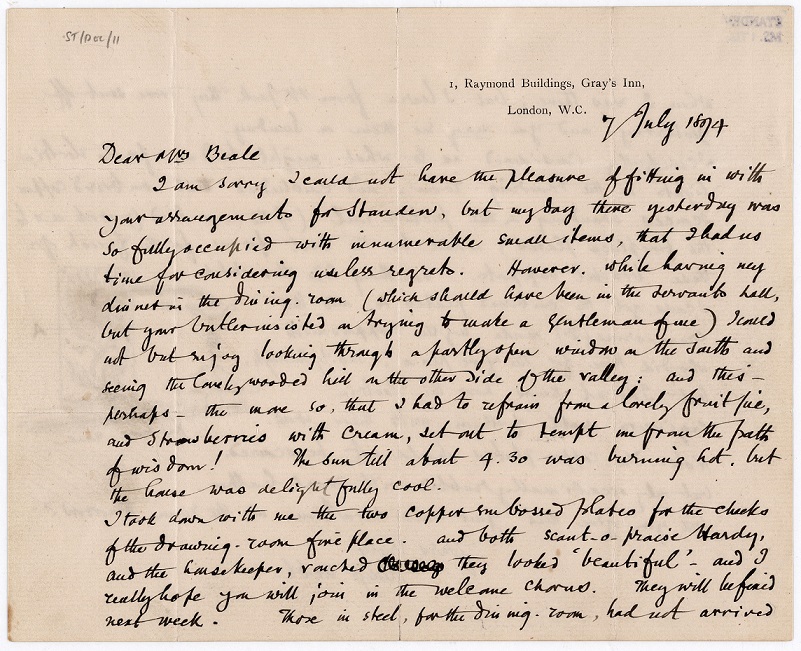 ST/DOC/11
1, Raymond Buildings, Gray's Inn,
London, W.C.
7 July 1894
Dear Mrs Beale
I am sorry I could not have the pleasure of fitting in with
your arrangements for Standen, but my day there yesterday was
so fully occupied with innumerable small items, that I had no
time for considering useless regrets. However, while having my
dinner in the dining-room (which should have been in the servants hall,
but your butler insisted on trying to make a gentleman of me) I could
not but enjoy looking through a partly open window on the South and
seeing the lovely wooded hill on the other side of the valley: and this -
perhaps - the more so, that I had to refrain from a lovely fruit pie,
and strawberries with cream, set out to tempt me from the path
of wisdom! The sun till about 4.30 was burning hot, but
the house was delightfully cool.
I took down with me the two copper embossed plates for the cheeks
of the drawing-room fire place. and both scant-o-praise Hardy,
and the housekeeper, vouched they looked 'beautiful' - and I
really hope you will join in the welcome chorus. They will be fixed
next week. Those in steel, for the dining-room, had not arrived